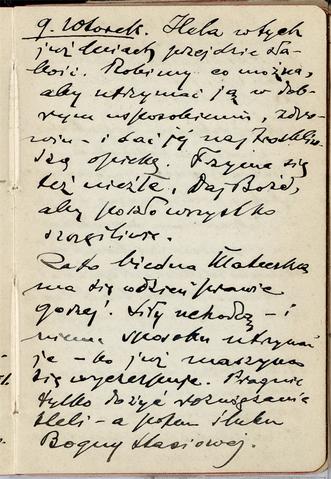 9. Wtorek. Hela w tych
już dniach przejdzie sła-
bość. Robimy co można,
aby utrzymać ją w dob-
rym usposobieniu, zdro-
wiu - i dać jej najtroskliw-
szą opiekę. Trzyma się
też nieźle, Daj Boże,
aby poszło wszystko
szczęśliwie.
Za to biedna Mateczka
ma się co dzień prawie
gorzej. Siły uchodzą - i
niema sposobu utrzymać
je - bo już maszyna
się wyczerpuje. Pragnie
tylko dożyć rozwiązania
Heli - a potem ślubu
Bogny Stasiowej.